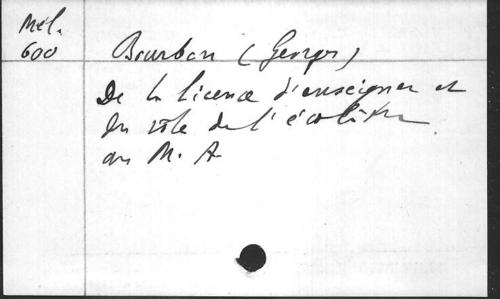 Mél.
600
Bourbon (Georges)
De la licence d'enseigner et
du rôle de l'écolâtre
au M. A